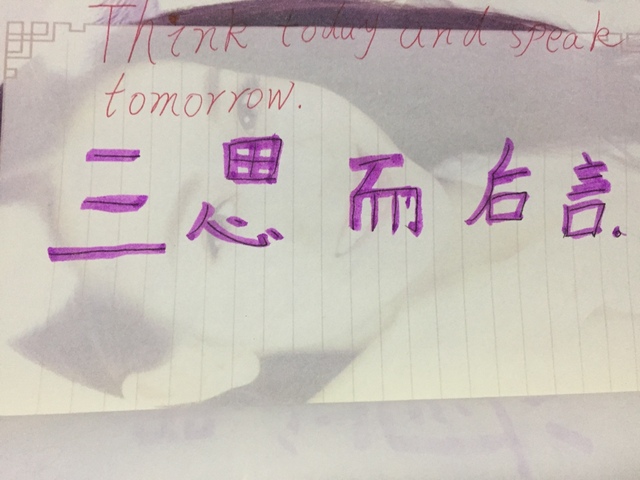 Think today and speak
tomorrow.
三思而后言.